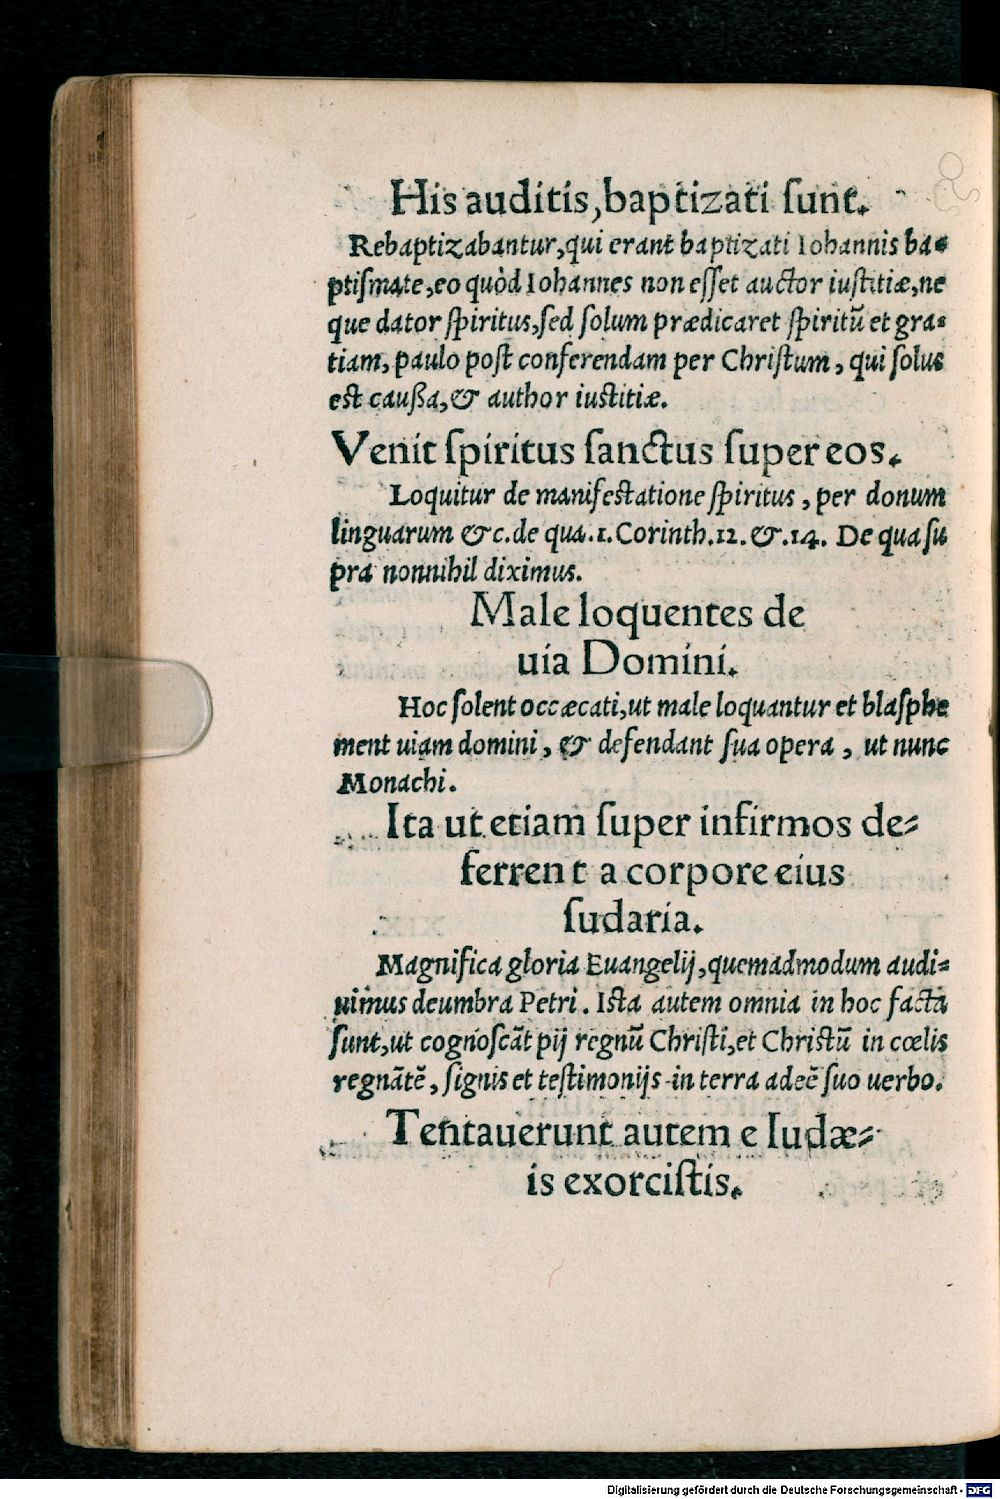 His auditis, baptizati ſunt.
Rebaptizabantur, qui erant baptizati Iohannis ba⸗
ptiſmate, eo quòd Iohannes non eſſet auctor iuſtitiæ, ne
que dator ſpiritus, ſed ſolum prædicaret ſpiritū et gra⸗
tiam, paulo poſt conferendam per Chriſtum, qui ſolus
est cauſſa, & author iustitiæ.
Venit ſpiritus ſanctus ſuper eos.
Loquitur de manifeſtatione ſpiritus, per donum
linguarum &c. de qua .1. Corinth. 12. &. 14. De qua ſu
pra nonnihil diximus.
Male loquentes de
uia Domini.
Hoc ſolent occæcati, ut male loquantur et blaſphe
ment uiam domini, & defendant ſua opera, ut nunc
Monachi.
Ita ut etiam ſuper infirmos de⸗
ferrent a corpore eius
ſudaria.
Magnifica gloria Euangelij, quemadmodum audi⸗
uimus de umbra Petri. Iſta autem omnia in hoc facta
ſunt, ut cognoſcāt pij regnū Chriſti, et Chriſtū in cœlis
regnātē, ſignis et teſtimonijs in terra adeē ſuo uerbo.
Tentauerunt autem e Iudæ⸗
is exorciſtis.
Digitalisierung gefördert durch die Deutsche Forschungsgemeinschaft - DFG